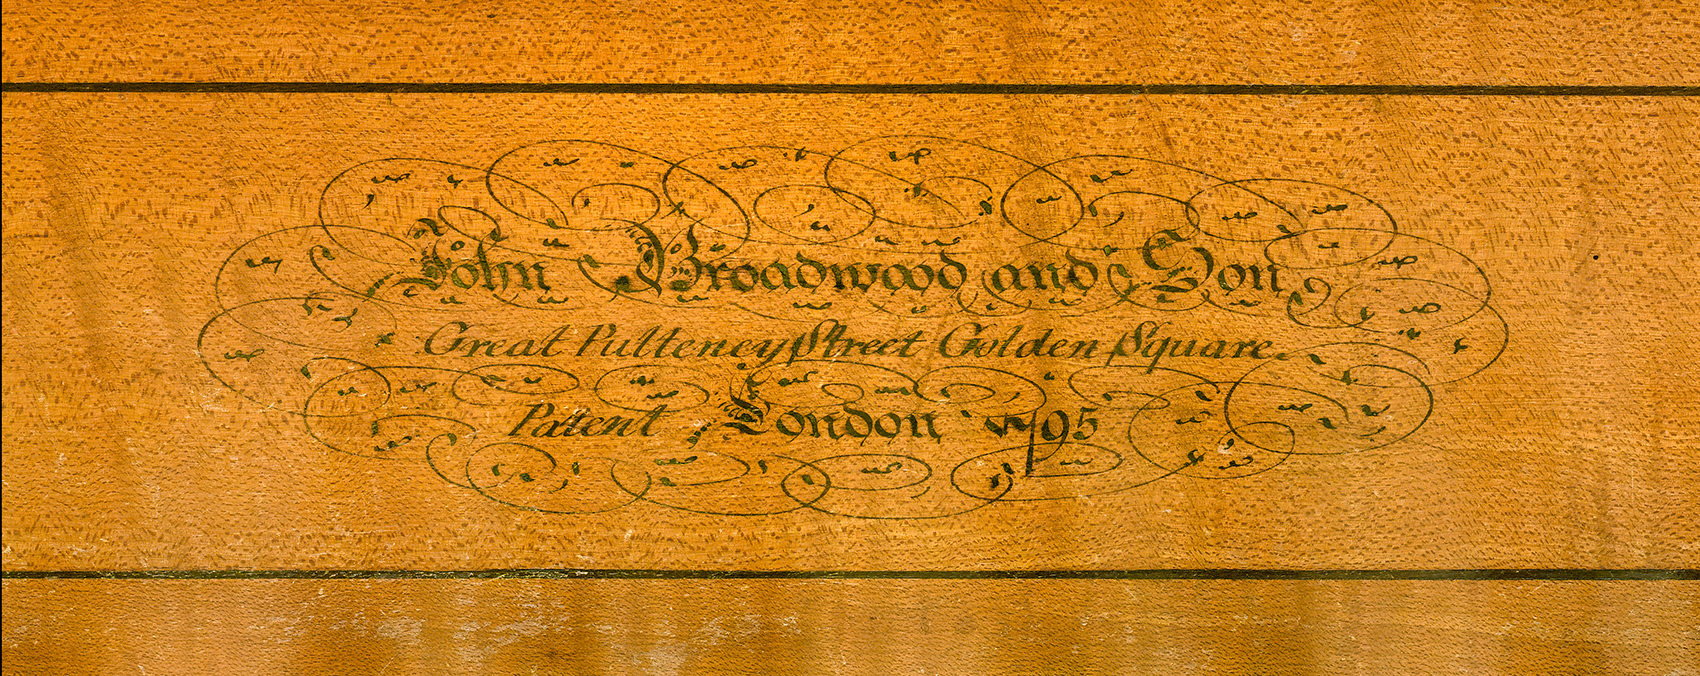 John Broadwood and Son,
Great Pulteney Street Golden Square
Patent London 1795